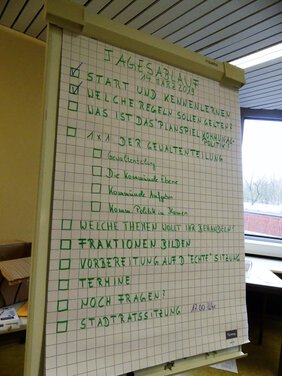 TAGESABLAUF
19. MÄRZ 2019
START UND KENNENLERNEN
WELCHE REGELN SOLLEN GELTEN?
WAS IST DAS PLANSPIEL KOMMUNAL-
POLITIK
1x1 DER GEWALTENTEILUNG
Gewaltenteilung
Die Kommunale Ebene
Kommunale Aufgaben
Komm. Politik in
WELCHE THEMEN WOLLT IHR BEHANDELN?
FRAKTIONEN BILDEN
VORBEREITUNG AUF D "ECHTE" SITZUNG
TERMINE
NOCH FRAGEN?
STADTRATSSITZUNG 17.00 Uhr